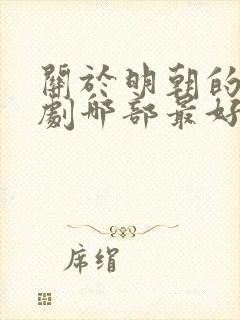 關於明朝的
劇哪部最好
席絹